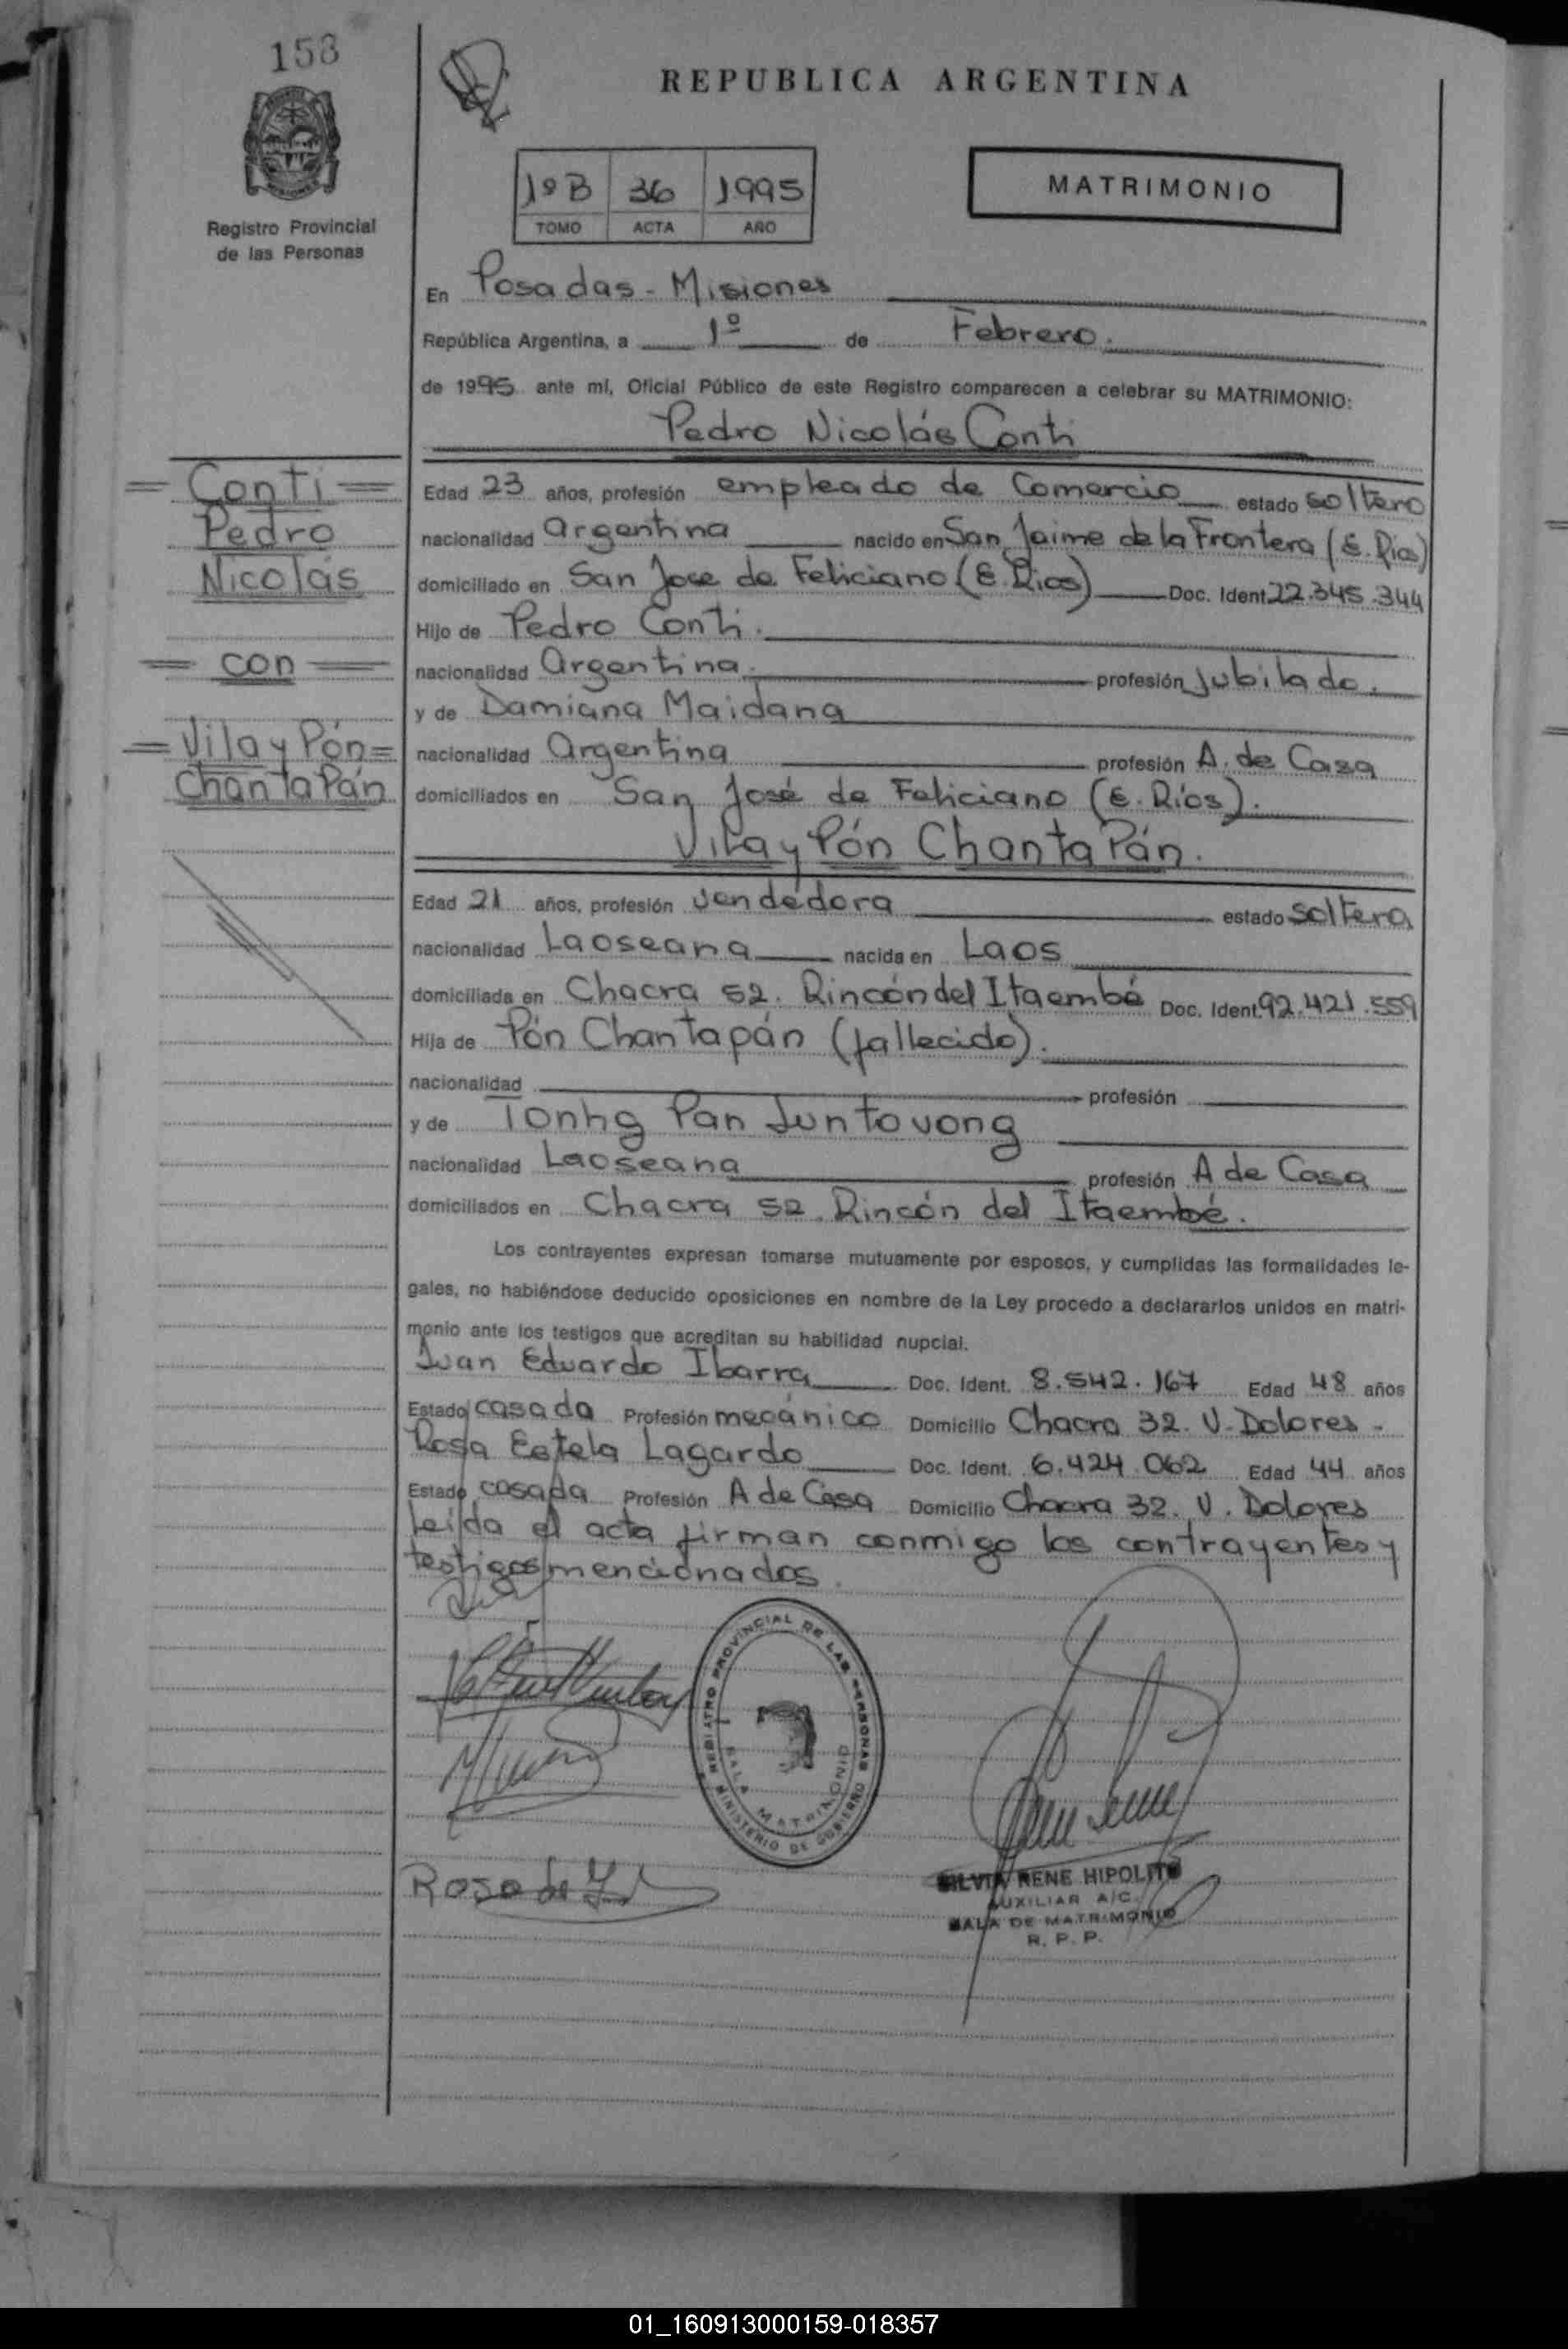 158
REPUBLICA ARGENTINA
1º B 36 1995
TOMO ACTA AÑO
MATRIMONIO
Registro Provincial
de las Personas
En Posadas - Misiones
República Argentina, a 1º de Febrero.
de 1995 ante mí, Oficial Público de este Registro comparecen a celebrar su MATRIMONIO:
Pedro Nicolás Conti
= Conti =
Pedro
Nicolás
= con =
= Vilay Pón =
Chanta Pán
Edad 23 años, profesión empleado de Comercio estado soltero
nacionalidad argentina nacido en San Jaime de la Frontera (E. Rios)
domiciliado en San Jose de Feliciano (E. Rios) Doc. Ident 22.345.344
Hijo de Pedro Conti.
nacionalidad argentina. profesión jubilado.
y de Damiana Maidana
nacionalidad argentina profesión A. de Casa
domiciliados en San José de Feliciano (E. Ríos).
Vilay Pón Chanta Pán.
Edad 21 años, profesión vendedora estado soltera
nacionalidad Laoseana nacida en Laos
domiciliada en Chacra 52. Rincón del Itaembé Doc. Ident. 92.421.559
Hija de Pón Chantapán (fallecido).
nacionalidad profesión
y de Tonhg Pan Juntovong
nacionalidad Laoseana profesión A de Casa
domiciliados en Chacra 52. Rincón del Itaembé.
Los contrayentes expresan tomarse mutuamente por esposos, y cumplidas las formalidades le-
gales, no habiéndose deducido oposiciones en nombre de la Ley procedo a declararlos unidos en matri-
monio ante los testigos que acreditan su habilidad nupcial.
Juan Eduardo Ibarra Doc. Ident. 8.542.167 Edad 48 años
Estado casada Profesión mecánico Domicilio Chacra 32. V. Dolores -
Rosa Estela Lagardo Doc. Ident. 6.424.062 Edad 44 años
Estado casada Profesión A de Casa Domicilio Chacra 32. V. Dolores
Leída el acta firman conmigo los contrayentes y
testigos mencionados.
REGISTRO PROVINCIAL DE LAS PERSONAS
MINISTERIO DE GOBIERNO
SALA MATRIMONIO
Rosa de
SILVIA RENE HIPOLITO
AUXILIAR A/C
SALA DE MATRIMONIO
R. P. P.
01_160913000159-018357